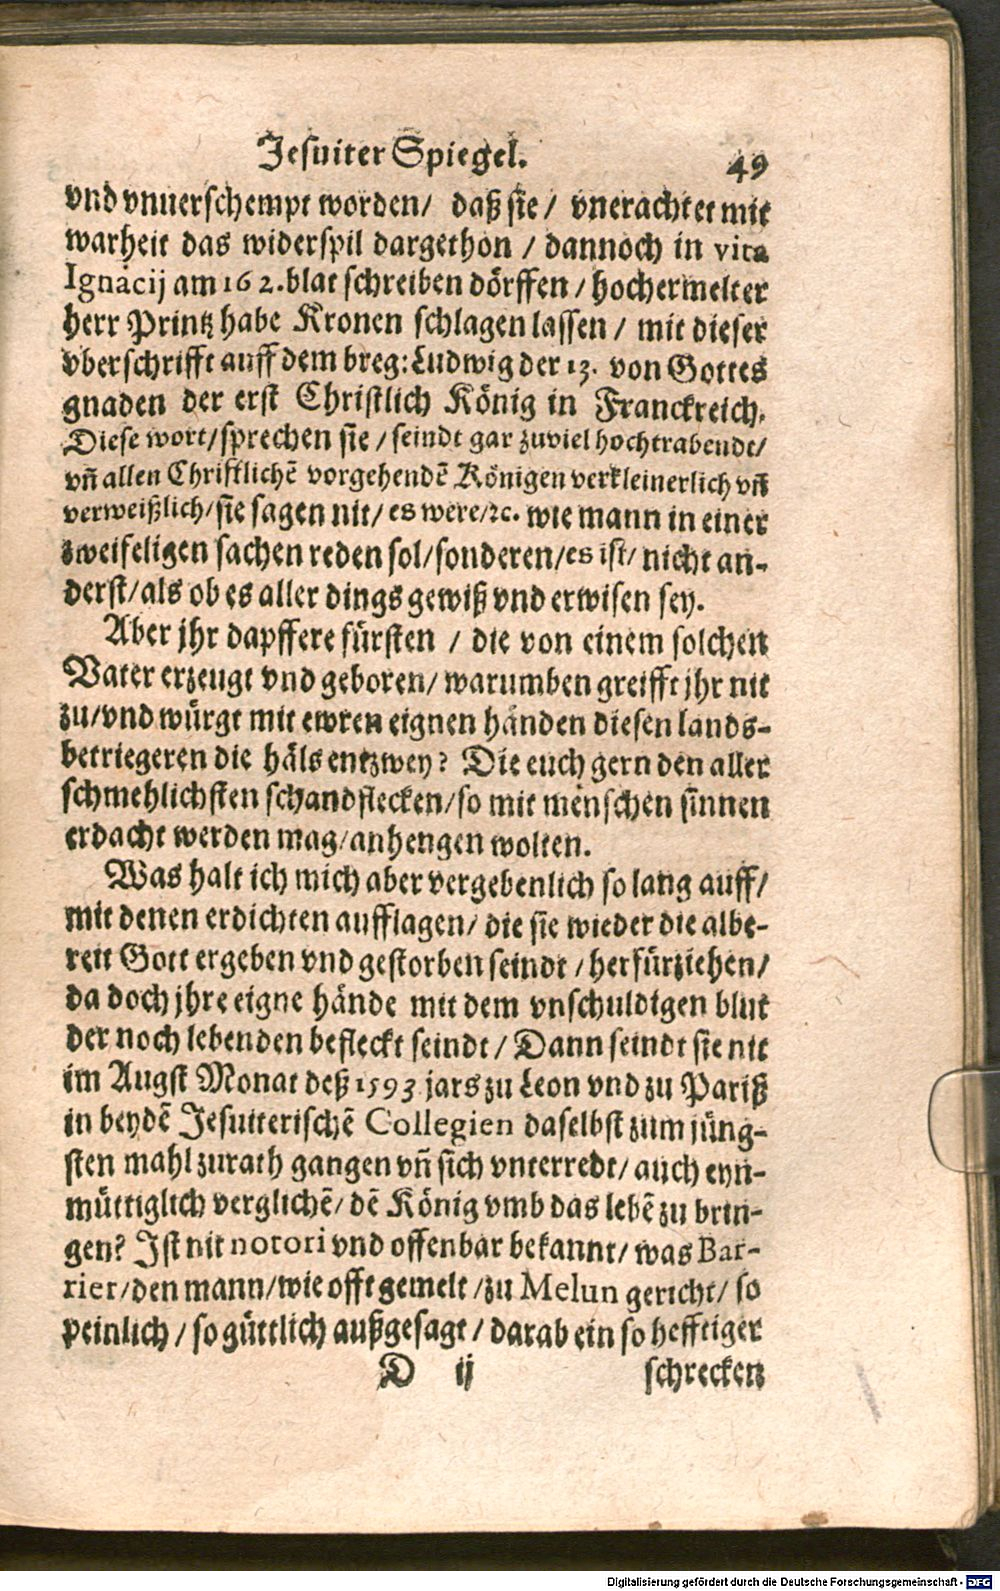 Jesuiter Spiegel. 49
vnd vnuerschempt worden/ daß sie/ vnerachtet mit
warheit das widerspil dargethon / dannoch in vita
Ignacij am 162. blat schreiben dörffen / hochermelter
herr Printz habe Kronen schlagen lassen / mit dieser
vberschrifft auff dem breg: Ludwig der 13. von Gottes
gnaden der erst Christlich König in Franckreich.
Diese wort/ sprechen sie / seindt gar zuviel hochtrabendt/
vñ allen Christlichẽ vorgehendẽ Königen verkleinerlich vñ
verweißlich/ sie sagen nit/ es were/ ꝛc. wie mann in einer
zweifeligen sachen reden sol/ sonderen/ es ist/ nicht an-
derst/ als ob es aller dings gewiß vnd erwisen sey.
Aber jhr dapffere fürsten / die von einem solchen
Vater erzeugt vnd geboren/ warumben greifft jhr nit
zu/ vnd würgt mit ewren eignen händen diesen lands-
betriegeren die häls entzwey? Die euch gern den aller
schmehlichsten schandflecken/ so mit menschen sinnen
erdacht werden mag/ anhengen wolten.
Was halt ich mich aber vergebenlich so lang auff/
mit denen erdichten aufflagen/ die sie wieder die albe-
reit Gott ergeben vnd gestorben seindt / herfürziehen/
da doch jhre eigne hände mit dem vnschuldigen blut
der noch lebenden befleckt seindt/ Dann seindt sie nit
im Augst Monat deß 1593 jars zu Leon vnd zu Pariß
in beydẽ Jesuiterischẽ Collegien daselbst zum jüng-
sten mahl zurath gangen vñ sich vnterredt/ auch eyn-
müttiglich verglichẽ/ dẽ König vmb das lebẽ zu brin-
gen? Ist nit notori vnd offenbar bekannt/ was Bar-
rier/ den mann/ wie offt gemelt / zu Melun gericht/ so
peinlich / so güttlich außgesagt / darab ein so hefftiger
D ij schrecken
Digitalisierung gefördert durch die Deutsche Forschungsgemeinschaft - DFG